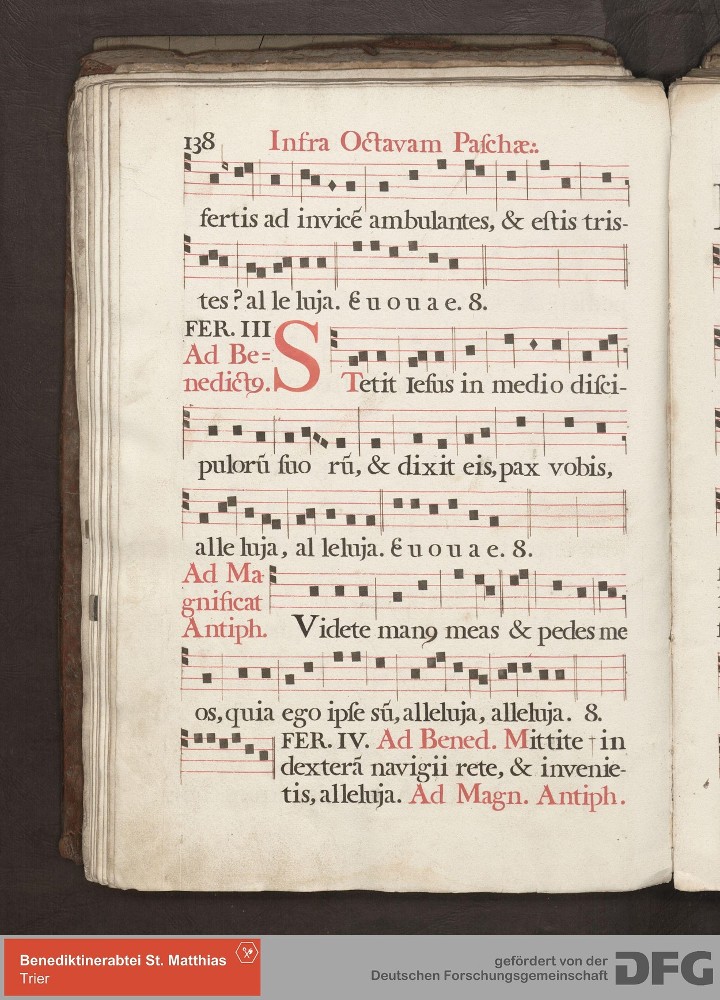 138 Infra Octavam Paſchæ:.
fertis ad invicẽ ambulantes, & eſtis tris-
tes? al le luja. E u o u a e. 8.
FER. III
Ad Be=
nedict9.
S Tetit Ieſus in medio diſci-
pulorũ ſuo rũ, & dixit eis, pax vobis,
alle luja, al leluja. E u o u a e. 8.
Ad Ma-
gnificat
Antiph.
Videte man9 meas & pedes me
os, quia ego ipſe sũ, alleluja, alleluja. 8.
FER. IV. Ad Bened. Mittite † in
dexterã navigii rete, & invenie-
tis, alleluja. Ad Magn. Antiph.
Benediktinerabtei St. Matthias
Trier
gefördert von der
Deutschen Forschungsgemeinschaft
DFG